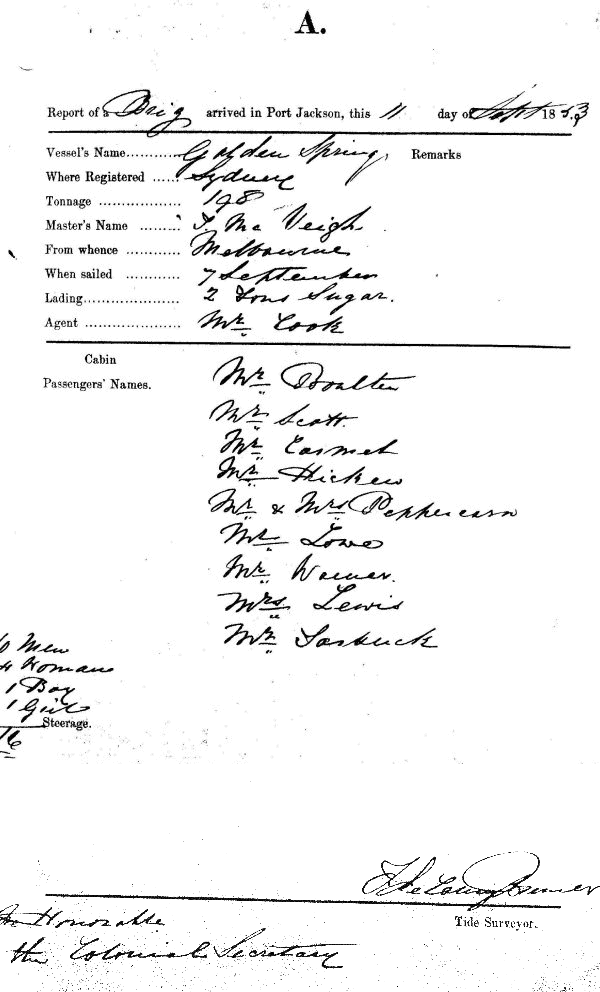 A.
Report of a Brig arrived in Port Jackson, this 11 day of Sept 1853
Vessel's Name........... Golden Spring, Remarks
Where Registered ..... Sydney
Tonnage .................. 198
Master's Name ......... Mc Veigh
From whence ........... Melbourne
When sailed ............ 7 September
Lading..................... 2 Tons Sugar.
Agent ...................... Mr Cook
Cabin
Passengers' Names.
Mr Boulten
Mr Scott
Mr
Mr Hicken
Mr & Mrs Peppercorn
Mr Lowe
Mr
Mrs Lewis
Mr
Men
4 Womans
1 Boy
1 Girl
Steerage.
16
Tide Surveyor.
Honorable
the Colonial Secretary